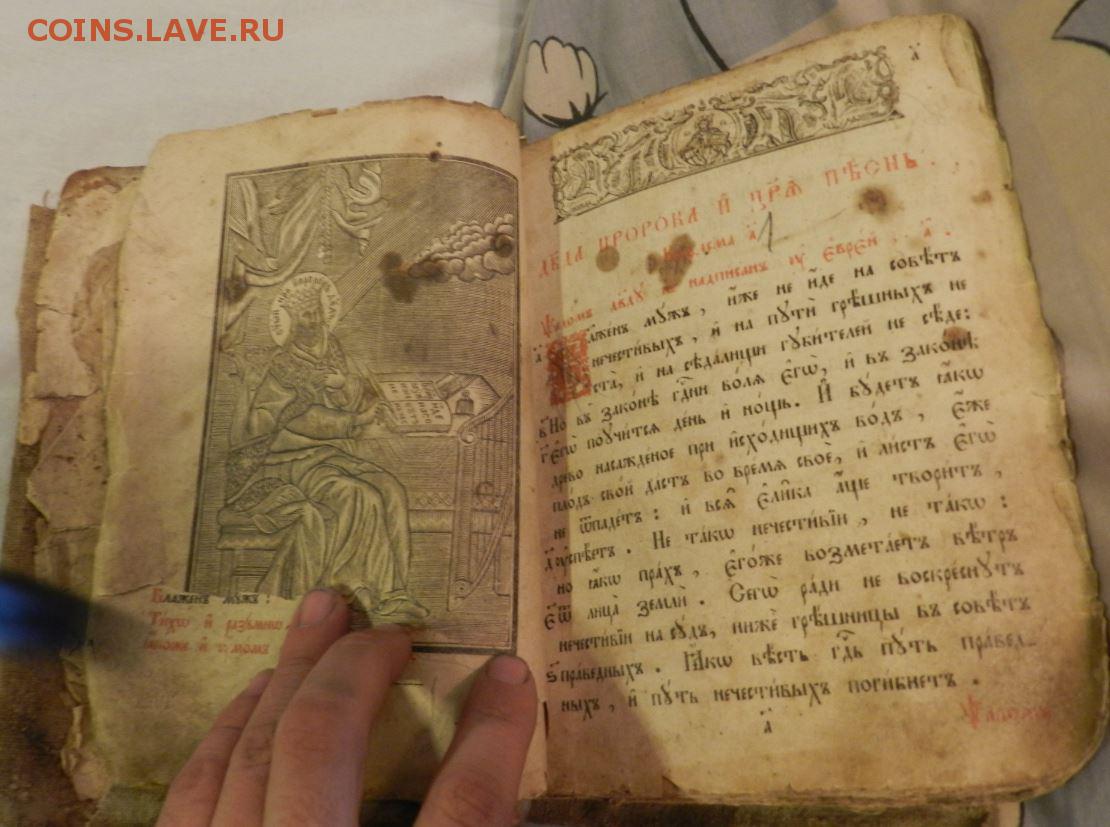 COINS.LAVE.RU
Блаженъ мужъ:
Тихѡ и разумнѡ
а҃
дв҃да пророка и цр҃ѧ пѣснь.
Каѳісма а҃ 1
Ѱаломъ дв҃ду не надписанъ ꙋ є҆врє́й. а҃.
а҃ Блаженъ мꙋ́жъ, и҆́же не и҆́де на совѣ́тъ
нечести́выхъ, и҆ на пꙋти́ грѣ́шныхъ не
ста̀, и҆ на сѣда́лищи гꙋби́телей не сѣ́де:
в҃ Но въ зако́нѣ гдⷭ҇ни во́лѧ є҆гѡ̀, и҆ въ зако́нѣ
г҃ є҆гѡ̀ поꙋчи́тсѧ де́нь и҆ но́щь. И҆ бꙋ́детъ ꙗ҆́кѡ
дре́во насажде́ное при и҆схо́дищихъ во́дъ, є҆́же
пло́дъ сво́й да́стъ во вре́мѧ своѐ, и҆ ли́стъ є҆гѡ̀
не ѿпаде́тъ: и҆ всѧ̑ є҆ли̑ка а҆́ще твори́тъ,
д҃ оу҆спѣ́етъ. Не та́кѡ нечести́вїи, не та́кѡ:
но ꙗ҆́кѡ пра́хъ, є҆го́же возмета́етъ вѣ́тръ
є҃ ѿ лица̀ землѝ. Сегѡ̀ ра́ди не воскре́снꙋтъ
нечести́вїи на сꙋ́дъ, нижѐ грѣ́шницы въ совѣ́тъ
ѕ҃ пра́ведныхъ. Ꙗ҆́кѡ вѣ́сть гдⷭ҇ь пꙋ́ть пра́вед-
ныхъ, и҆ пꙋ́ть нечести́выхъ поги́бнетъ.
а҃
Ѱаломъ